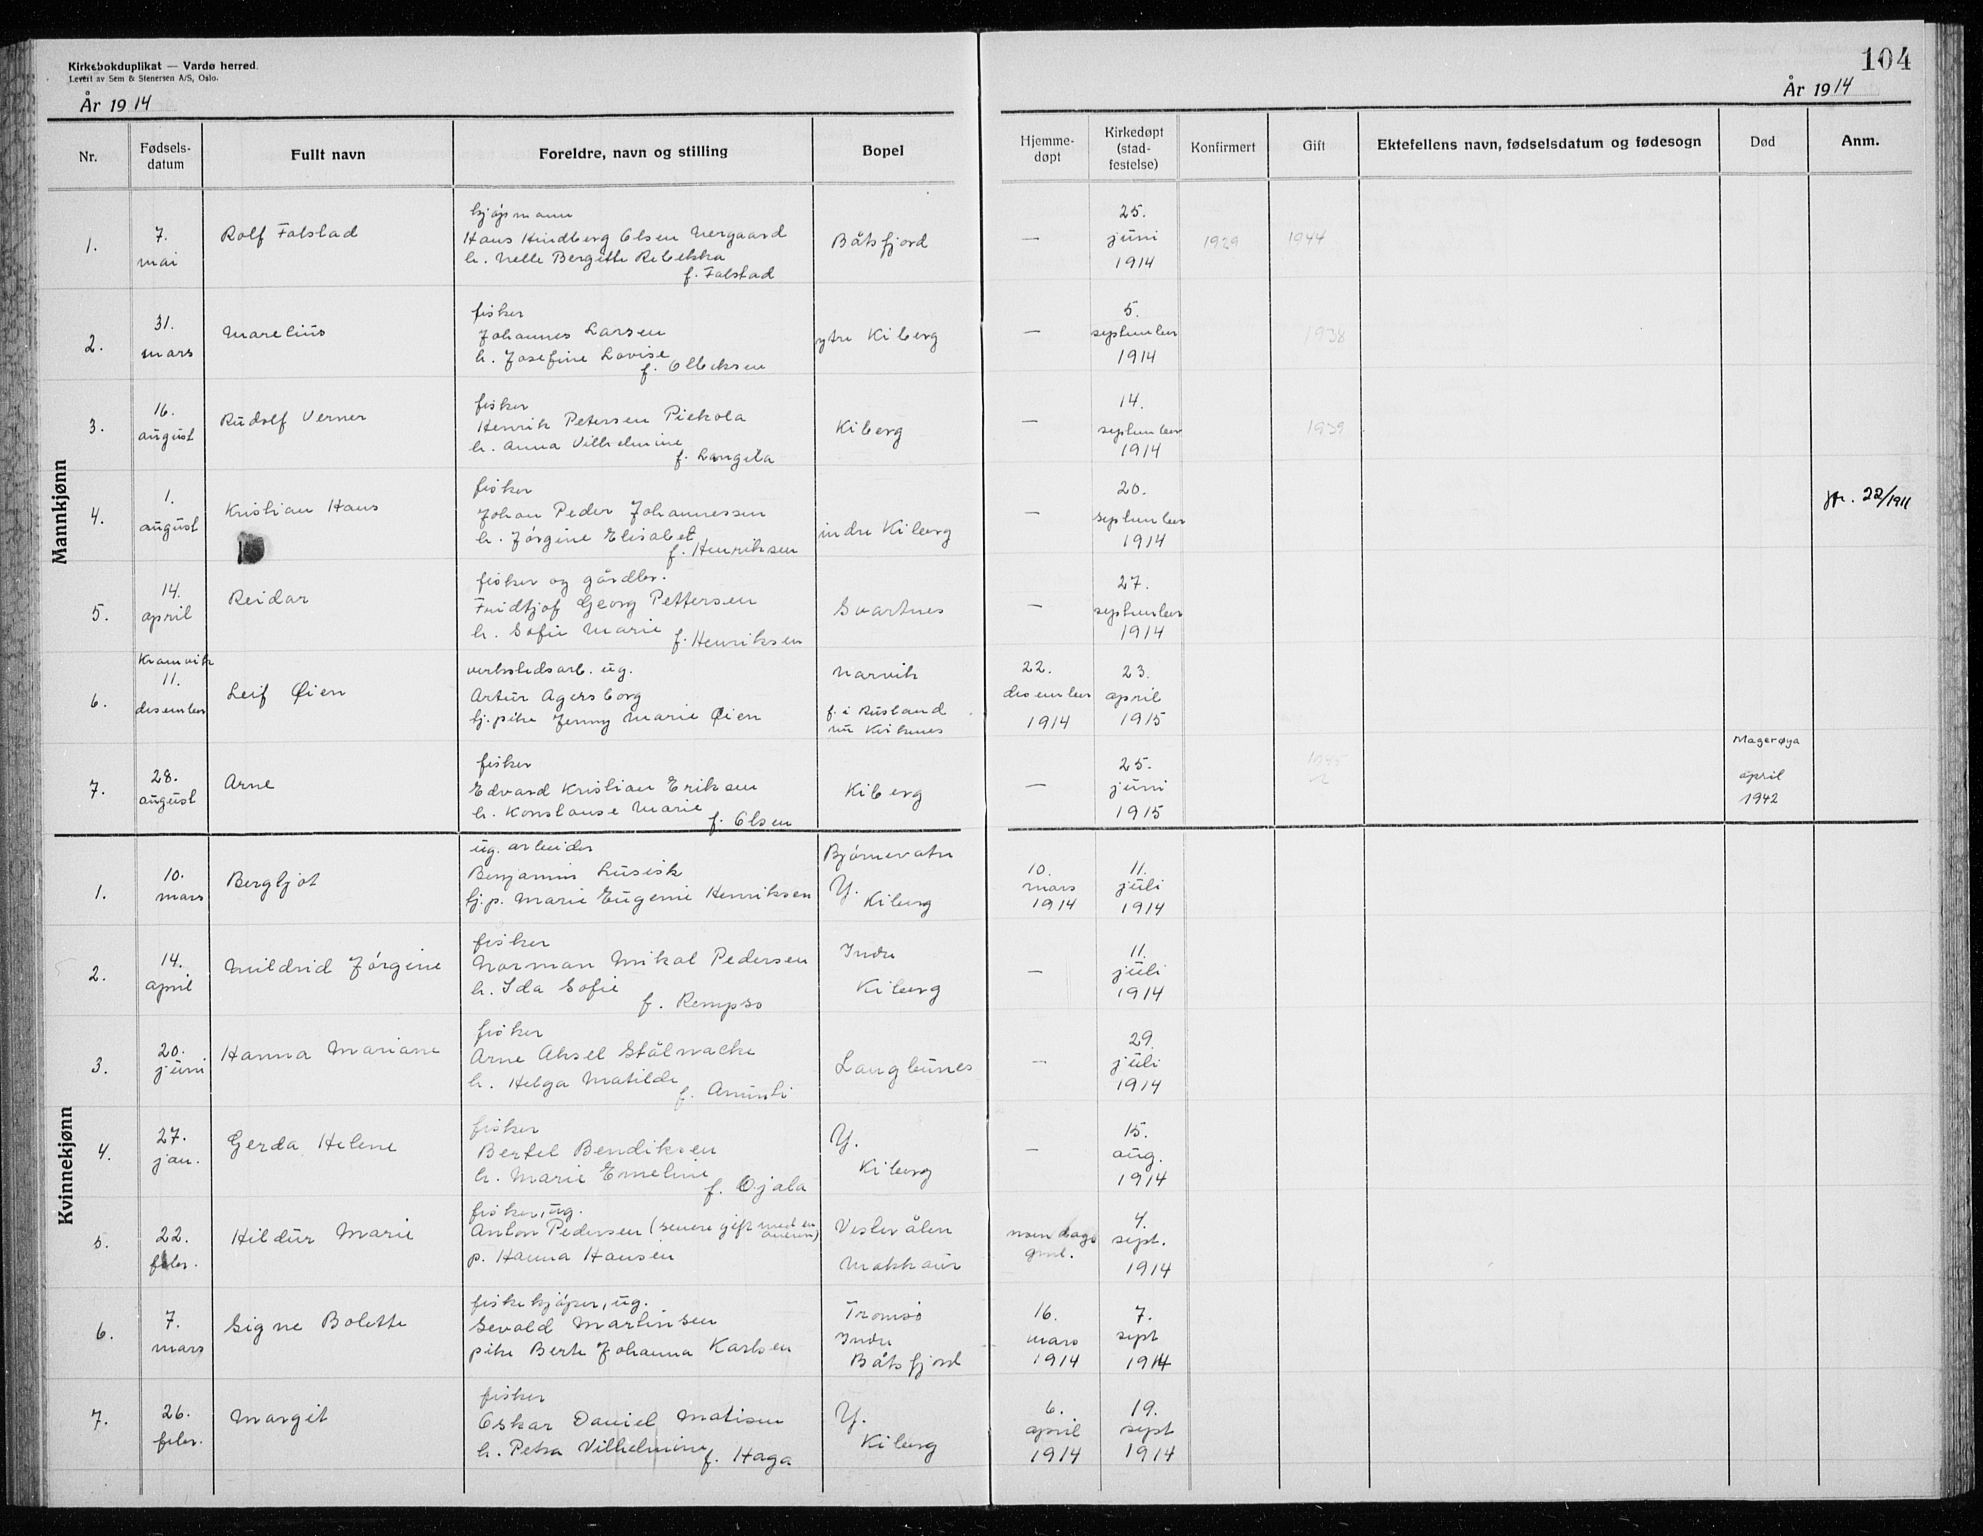 Kirkebokduplikat — Vardø herred.
Levert av Sem & Stenersen A/S, Oslo.
104
År 1914
År 1914
Nr.
Fødsels-
datum
Fullt navn
Foreldre, navn og stilling
Bopel
Hjemme-
døpt
Kirkedøpt
(stad-
festelse)
Konfirmert
Gift
Ektefellens navn, fødselsdatum og fødesogn
Død
Anm.
Mannkjønn
1.
7.
mai
Rolf Falstad
kjøpmann
Hans Hindberg Olsen Nergaard
h. Nelle Bergitte Rebekka
f. Falstad
Båtsfjord
—
25.
juni
1914
1929
1944
2.
31.
mars
Marelius
fisker
Johannes Larsen
h. Josefine Lovise
f.
ytre Kiberg
—
5.
september
1914
1938
3.
16.
august
Rudolf Verner
fisker
Henrik Petersen Piekola
h. Anna Vilhelmine
f. Langela
Kiberg
—
14.
september
1914
1939
4.
1.
august
Kristian Hans
fisker
Johan Peder Johannessen
h. Jørgine Elisabet
f. Henriksen
indre Kiberg
—
20.
september
1914
22/1911
5.
14.
april
Reidar
fisker og gårdbr.
Fridtjof Georg Pettersen
h. Sofie Marie
f. Henriksen
Svartnes
—
27.
september
1914
6.
Kramvik
11.
desember
Leif Øien
verkstedsarb. ug.
Artur Agersborg
tj.pike Jenny Marie Øien
Narvik
f. i Rusland
nu Kirkenes
22.
desember
1914
23.
april
1915
7.
28.
august
Arne
fisker
Edvard Kristian Eriksen
h. Konstanse Marie
f. Olsen
Kiberg
—
25.
juni
1915
Magerøya
april
1942
Kvinnekjønn
1.
10.
mars
Bergljot
ug. arbeider
Benjamin Lusisk
tj.p. Marie Eugenie Henriksen
Bjørnevatn
Y.
Kiberg
10.
mars
1914
11.
juli
1914
2.
14.
april
Mildrid Jørgine
fisker
Norman Mikal Pedersen
h. Ida Sofie
f. Rempso
Indre
Kiberg
—
11.
juli
1914
3.
20.
juni
Hanna Mariane
fisker
Arne Aksel Stålnacke
h. Helga Matilde
f. Anunti
Langbunes
—
29.
juli
1914
4.
27.
jan.
Gerda Helene
fisker
Bertel Bendiksen
h. Marie Emeline
f. Ojala
Y.
Kiberg
—
15.
aug.
1914
5.
22.
febr.
Hildur Marie
fisker, ug.
Anton Pedersen (senere gift med en annen)
p. Hanna Hansen
Vesterålen
Makkaur
noen dage
gml.
4.
sept.
1914
6.
7.
mars
Signe Bolette
fiskekjøper, ug.
Sevald Martinsen
pike Berte Johanna Karlsen
Tromsø
Indre
Båtsfjord
16.
mars
1914
7.
sept
1914
7.
26.
febr.
Margit
fisker
Oskar Daniel Matisen
h. Petra Vilhelmine
f. Haga
Y.
Kiberg
6.
april
1914
19.
sept
1914